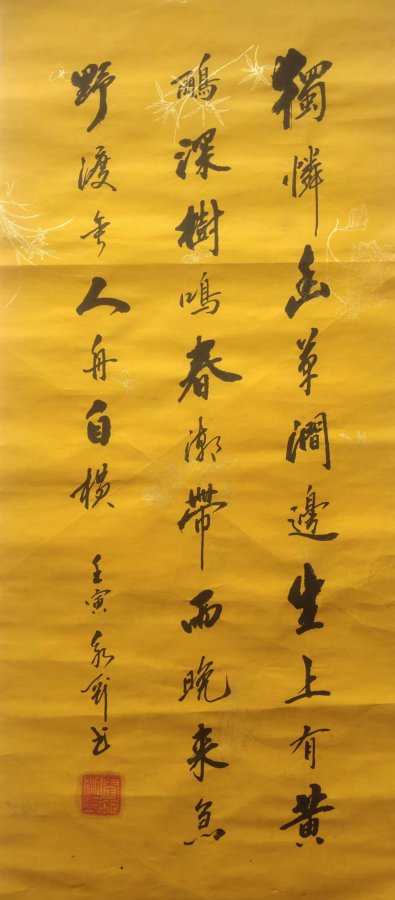 獨憐幽草澗邊生上有黄
鸝深樹鳴春潮帶雨晚来急
野渡無人舟自橫
壬寅永剛书